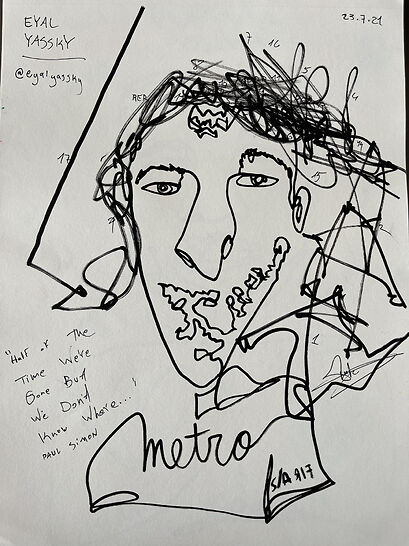 EYAL
YASSKY
@eyalyassky
23.7.21
7
16
17
15
2
1
"Half of The
Time We're
Gone But
We Don't
Know Where..."
PAUL SIMON
metro